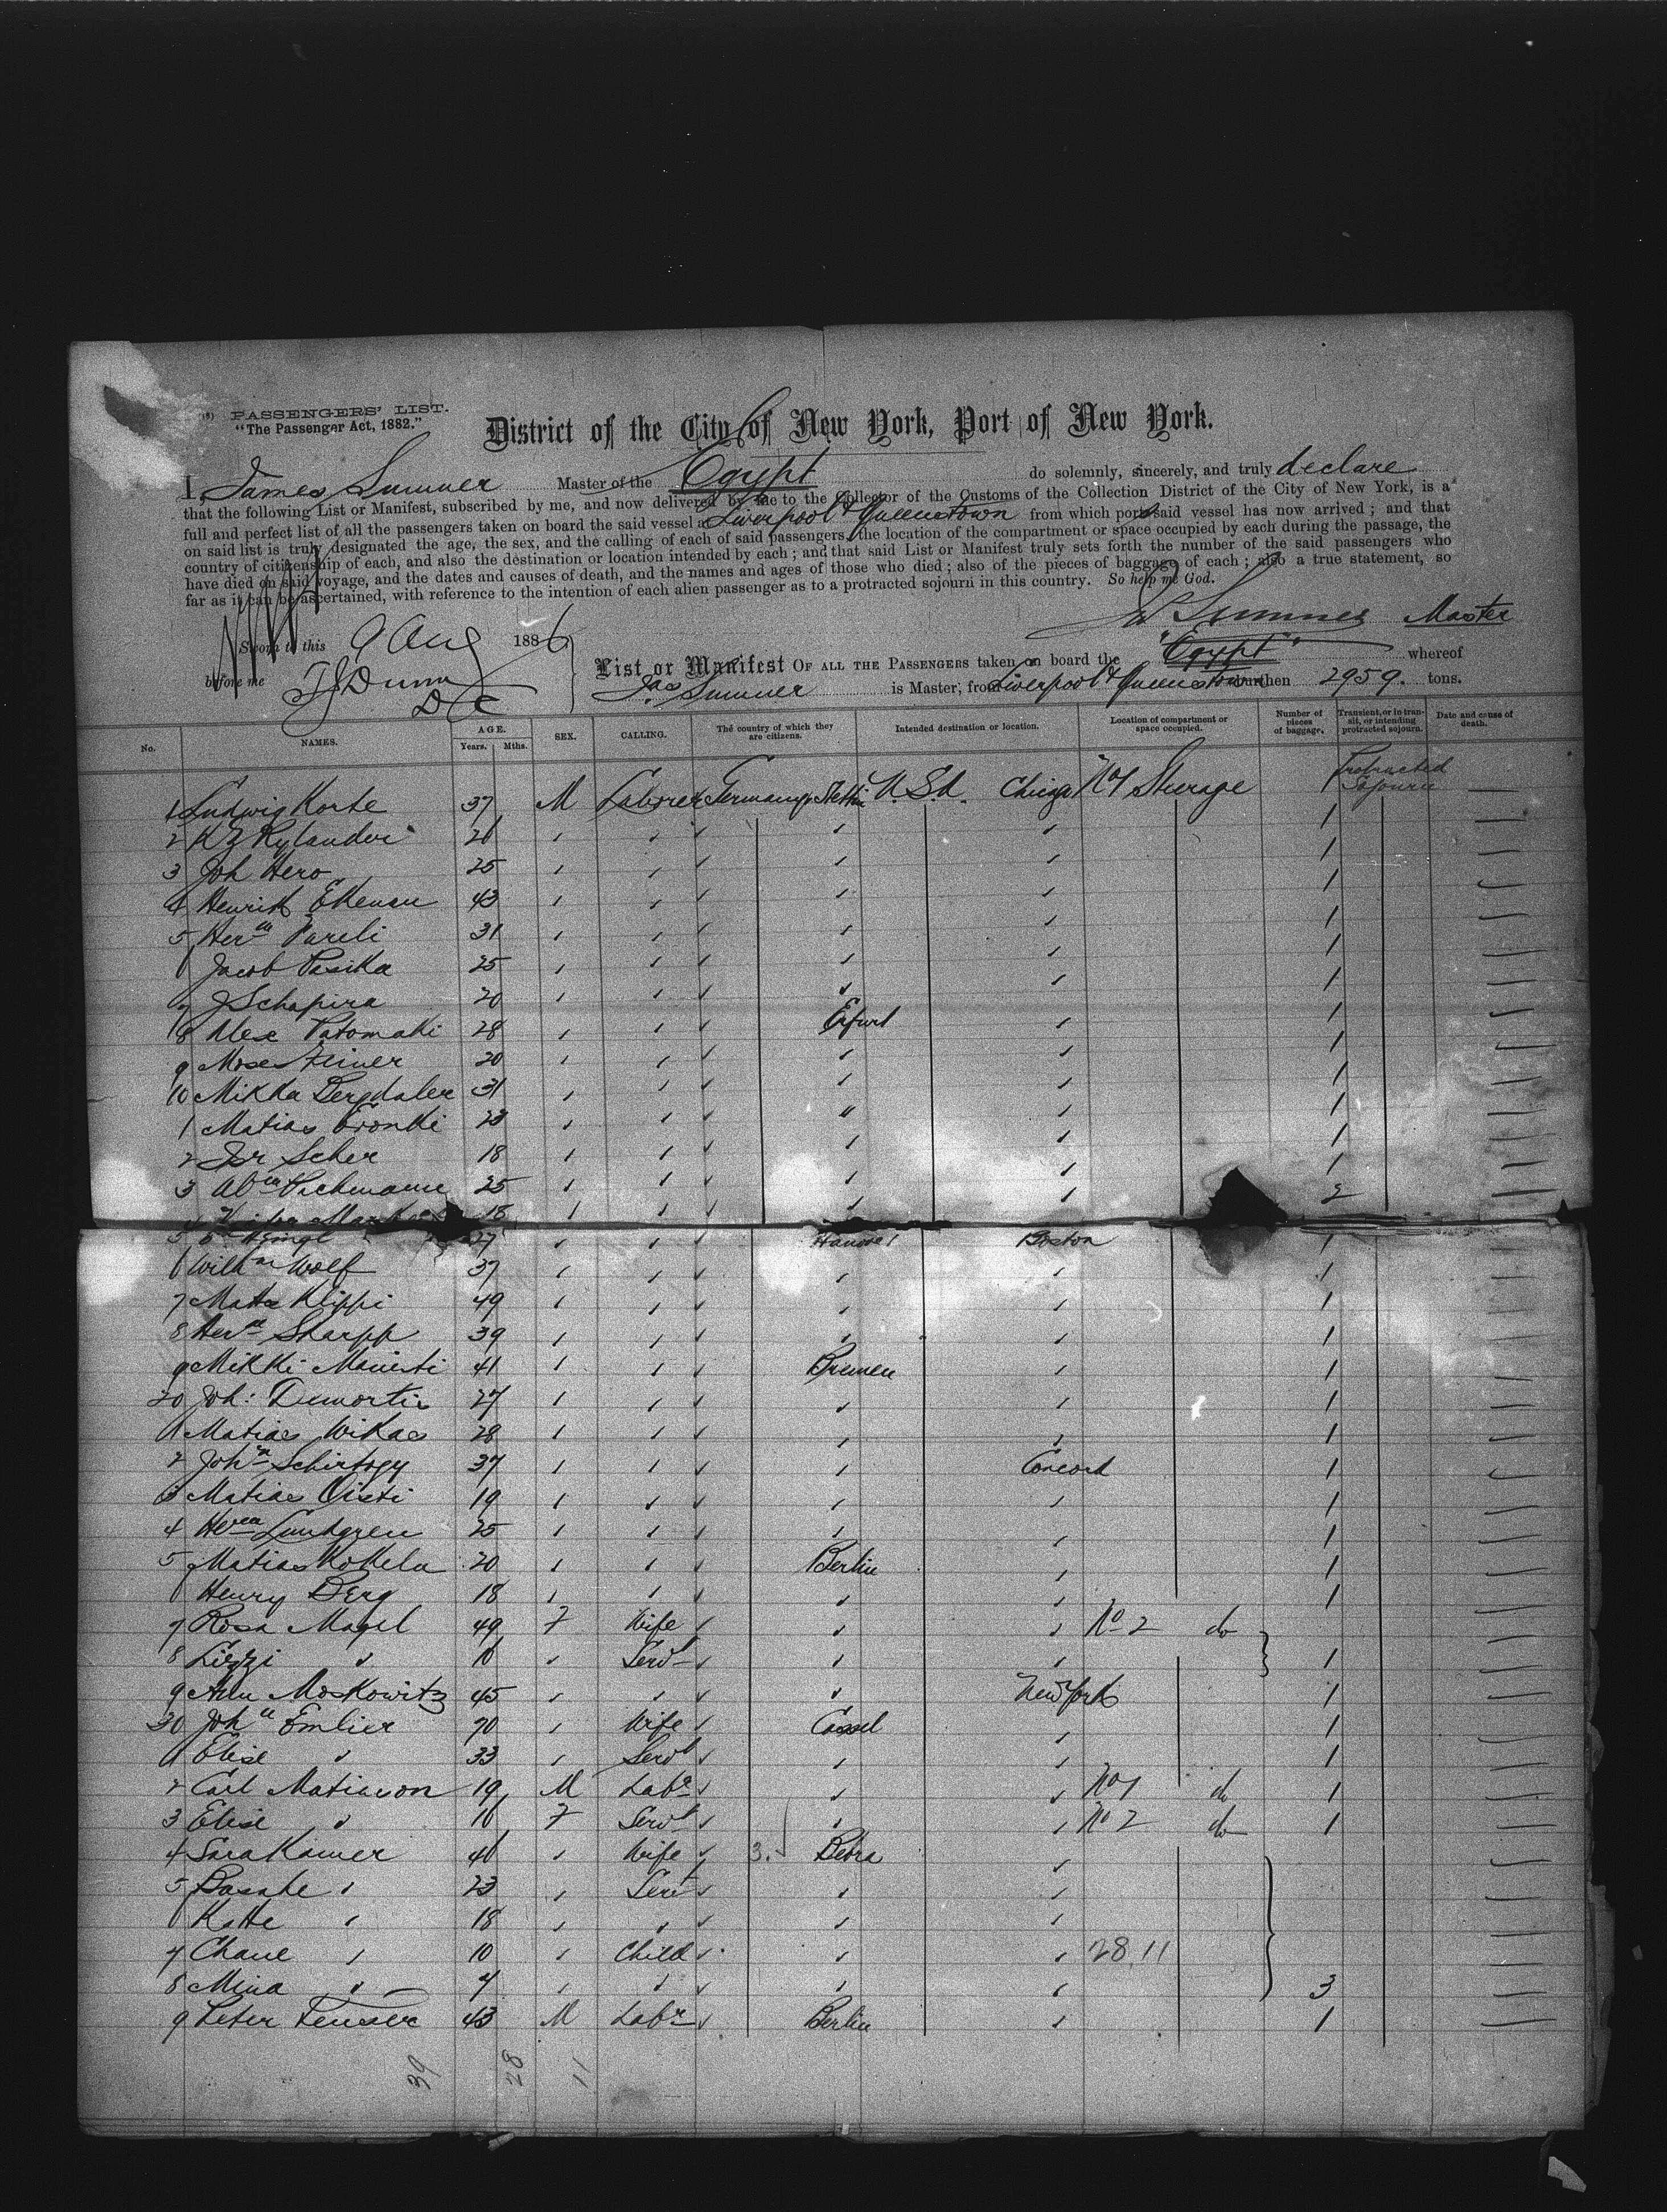 PASSENGERS' LIST.
"The Passenger Act, 1882."
District of the City of New York, Port of New York.
I, James Sumner Master of the Egypt do solemnly, sincerely, and truly declare
that the following List or Manifest, subscribed by me, and now delivered by me to the Collector of the Customs of the Collection District of the City of New York, is a
full and perfect list of all the passengers taken on board the said vessel at Liverpool & Queenstown from which port said vessel has now arrived; and that
on said list is truly designated the age, the sex, and the calling of each of said passengers, the location of the compartment or space occupied by each during the passage, the
country of citizenship of each, and also the destination or location intended by each; and that said List or Manifest truly sets forth the number of the said passengers who
have died on said voyage, and the dates and causes of death, and the names and ages of those who died; also of the pieces of baggage of each; also a true statement, so
far as it can be ascertained, with reference to the intention of each alien passenger as to a protracted sojourn in this country. So help me God.
Jas Sumner Master
Sworn to this 9 Aug 1886
"Egypt"
before me
List or Manifest OF ALL THE PASSENGERS taken on board the Egypt whereof
Jas Sumner is Master, from Liverpool & Queenstown burthen 2959. tons.
No. NAMES. AGE. Years. Mths. SEX. CALLING. The country of which they are citizens. Intended destination or location. Location of compartment or space occupied. Number of pieces of baggage. Transient, or in transit, or intending protracted sojourn. Date and cause of death.
1 Ludwig Korte 37 M Laborer Germany Stettin U.S.A. Chicago No 1 Steerage 1 Protracted Sojourn
2 Rylander 26 1
3 Joh Hero 25 1
4 Henrik Ekeman 43 1
5 Herm Pareli 31 1
6 Jacob Pasika 25 1
7 J Schapira 20 1
8 Alex Patomaki 28 Erfurt 1
9 Mose Steiner 20 1
10 Mikka Bergdaler 31 1
1 Matias 23 " 1
2 Isr Scher 18 1
3 Abm 25 1
4 18 2
5 27 Hanover Boston 1
6 Wilhm Wolf 37 1
7 Matts Klippi 49 1
8 Herm Sharpp 39 1
9 Mikki 41 Bremen 1
20 Joh: 27 1
1 Matias Wikas 28 1
2 John 37 Concord 1
3 Matias Oisti 19 1
4 Herm Lundgren 25 1
5 Matias Kokela 20 Berlin 1
6 Henry Berg 18 1
7 Rosa Magel 49 F Wife No 2 do
8 Lizzi 16 Servt 1
9 Moskowitz 45 New York 1
30 Joha Emlier 70 Wife Cassel 1
1 Elise 33 Servt 1
2 Carl Matiason 19 M Labr No 1 do 1
3 Elise 16 F Servt No 2 do 1
4 Sara Kamer 46 Wife 3. Bebra
5 23 Servt
6 Katte 18
7 Chane 10 Child 28.11
8 Mina 7 3
9 Peter 43 M Labr Berlin 1
39 28 11